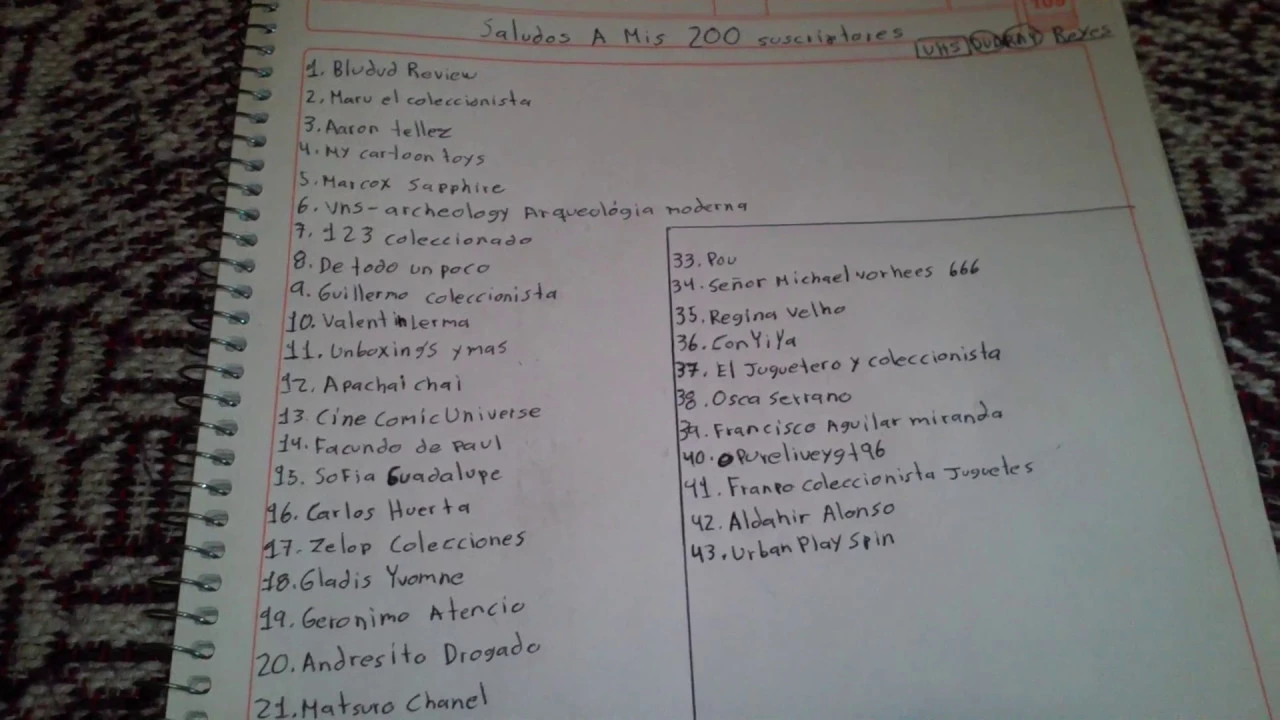 109
Saludos A Mis 200 suscriptores VHS DUBERNY Reyes
1. Bludud Review
2. Maru el coleccionista
3. Aaron tellez
4. My cartoon toys
5. Marcox Sapphire
6. VHS-archeology Arqueológia moderna
7. 123 coleccionado
8. De todo un poco
9. Guillermo coleccionista
10. Valentin lerma
11. Unboxing's y mas
12. Apachai chai
13. Cine Comic Universe
14. Facundo de paul
15. Sofia Guadalupe
16. Carlos Huerta
17. Zelop Colecciones
18. Gladis Yvomne
19. Geronimo Atencio
20. Andresito Drogado
21. Matsuro Chanel
33. Pou
34. Señor Michael vorhees 666
35. Regina Velho
36. ConYiYa
37. El Juguetero y coleccionista
38. Osca Serrano
39. Francisco Aguilar miranda
40. Pureliveygt96
41. Franpo coleccionista Juguetes
42. Aldahir Alonso
43. Urban Play Spin